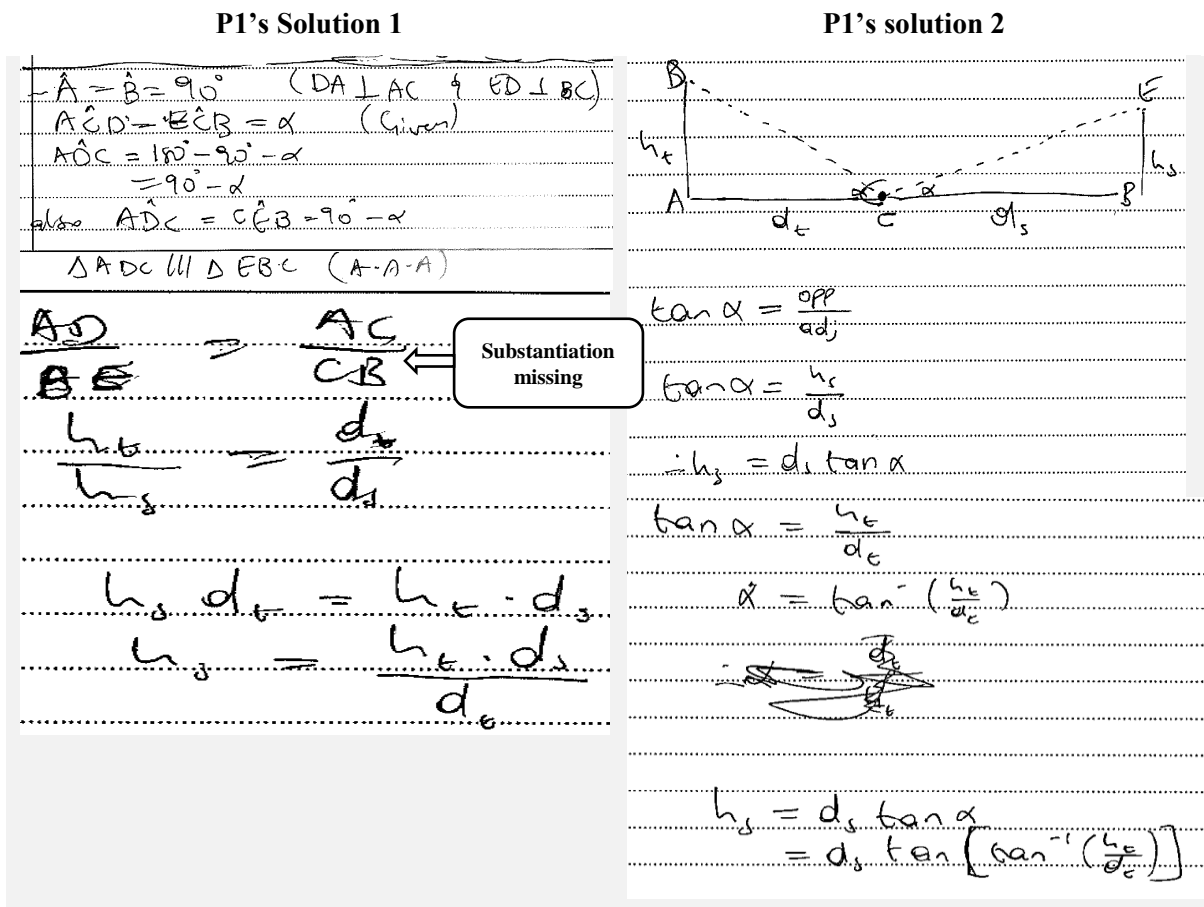 P1's Solution 1
- Â = B̂ = 90° (DA ⊥ AC & ED ⊥ BC)
AĈD = EĈB = α (Given)
AD̂C = 180° - 90° - α
= 90° - α
also AD̂C = CÊB = 90° - α
Δ ADC /// Δ EBC (A-A-A)
AD/BE = AC/CB
Substantiation
missing
h_t/h_s = d_t/d_s
h_s d_t = h_t · d_s
h_s = h_t · d_s / d_t
P1's solution 2
B
E
h_t
h_s
A
α
α
B
d_t
C
d_s
tan α = opp/adj
tan α = h_s/d_s
∴ h_s = d_s tan α
tan α = h_t/d_t
α = tan⁻ (h_t/d_t)
h_s = d_s tan α
= d_s tan [tan⁻¹ (h_t/d_t)]